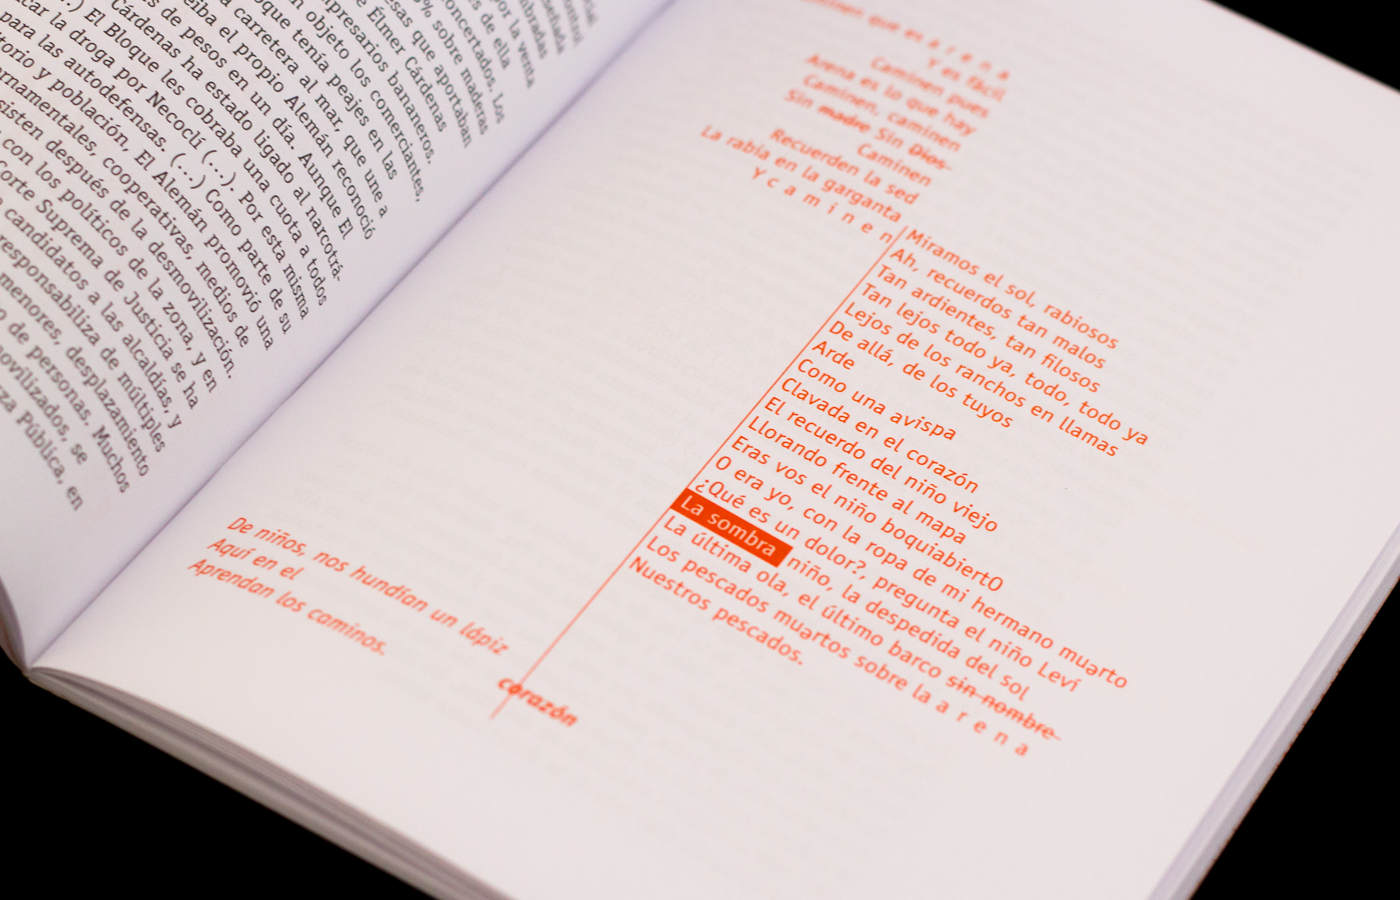 por la venta
de ella
oncertados. Los
% sobre maderas
sas que aportaban
e Élmer Cárdenas
mpresarios bananeros.
n objeto los comerciantes,
oque tenía peajes en las
a carretera al mar, que une a
eiba el propio Alemán reconoció
es de pesos en un día. Aunque El
Cárdenas ha estado ligado al narcotrá-
..) El Bloque les cobraba una cuota a todos
car la droga por Necoclí (...). Por esta misma
para las autodefensas. (...) Como parte de su
torio y población, El Alemán promovió una
ernamentales, cooperativas, medios de
sisten después de la desmovilización.
con los políticos de la zona, y en
orte Suprema de Justicia se ha
candidatos a las alcaldías, y
responsabiliza de múltiples
menores, desplazamiento
o de personas. Muchos
ovilizados, se
za Pública, en
minen que es a r e n a
Y es fácil
Caminen pues
Arena es lo que hay
Caminen, caminen
Sin madre Sin Dios
Caminen
Recuerden la sed
La rabia en la garganta
Y c a m i n e n
Miramos el sol, rabiosos
Ah, recuerdos tan malos
Tan ardientes, tan filosos
Tan lejos todo ya, todo, todo ya
Lejos de los ranchos en llamas
De allá, de los tuyos
Arde
Como una avispa
Clavada en el corazón
El recuerdo del niño viejo
Llorando frente al mapa
Eras vos el niño boquiabiertO
O era yo, con la ropa de mi hermano muǝrto
¿Qué es un dolor?, pregunta el niño Leví
La sombra niño, la despedida del sol
La última ola, el último barco sin nombre
Los pescados muǝrtos sobre la a r e n a
Nuestros pescados.
De niños, nos hundían un lápiz
Aquí en el
corazón
Aprendan los caminos.